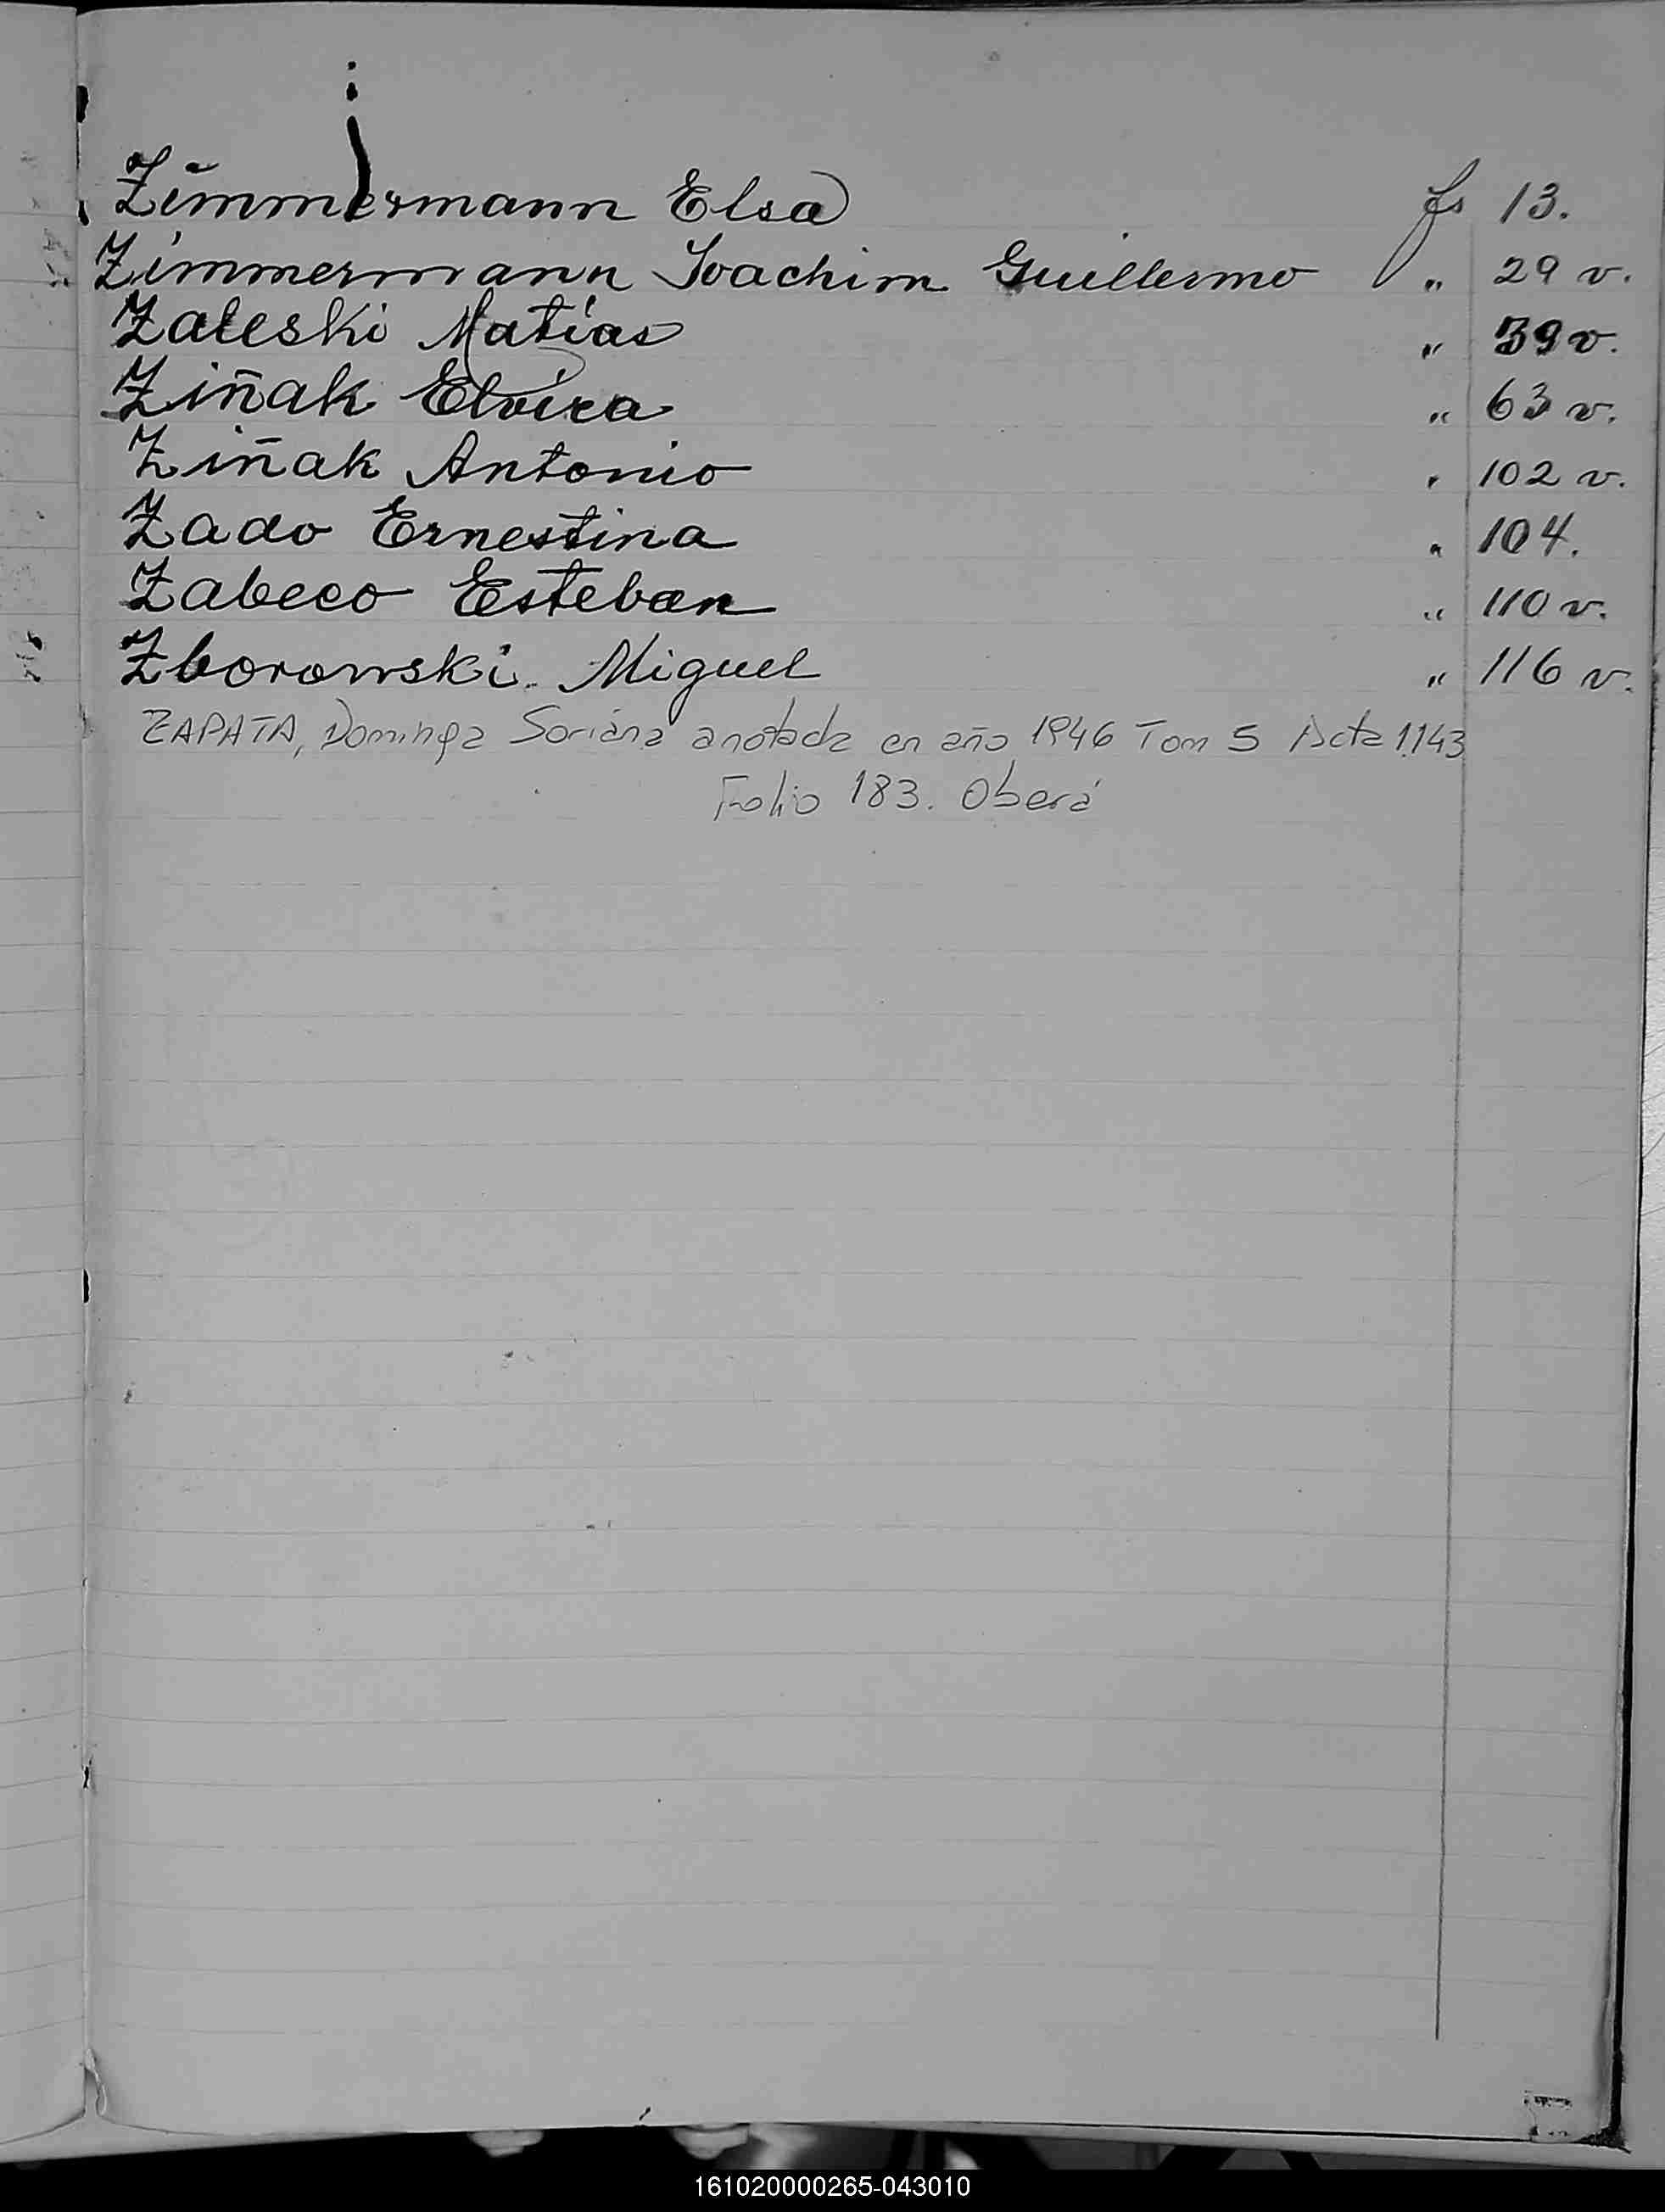 Zimmermann Elsa fs 13.
Zimmermann Joachim Guillermo " 29 v.
Zaleski Matias " 39 v.
Ziñak Elvira " 63 v.
Ziñak Antonio " 102 v.
Zado Ernestina " 104.
Zabeco Esteban " 110 v.
Zborowski Miguel " 116 v.
ZAPATA, Dominga Soriana anotada en año 1946 Tom 5 Acta 1.143
Folio 183. Oberá
161020000265-043010